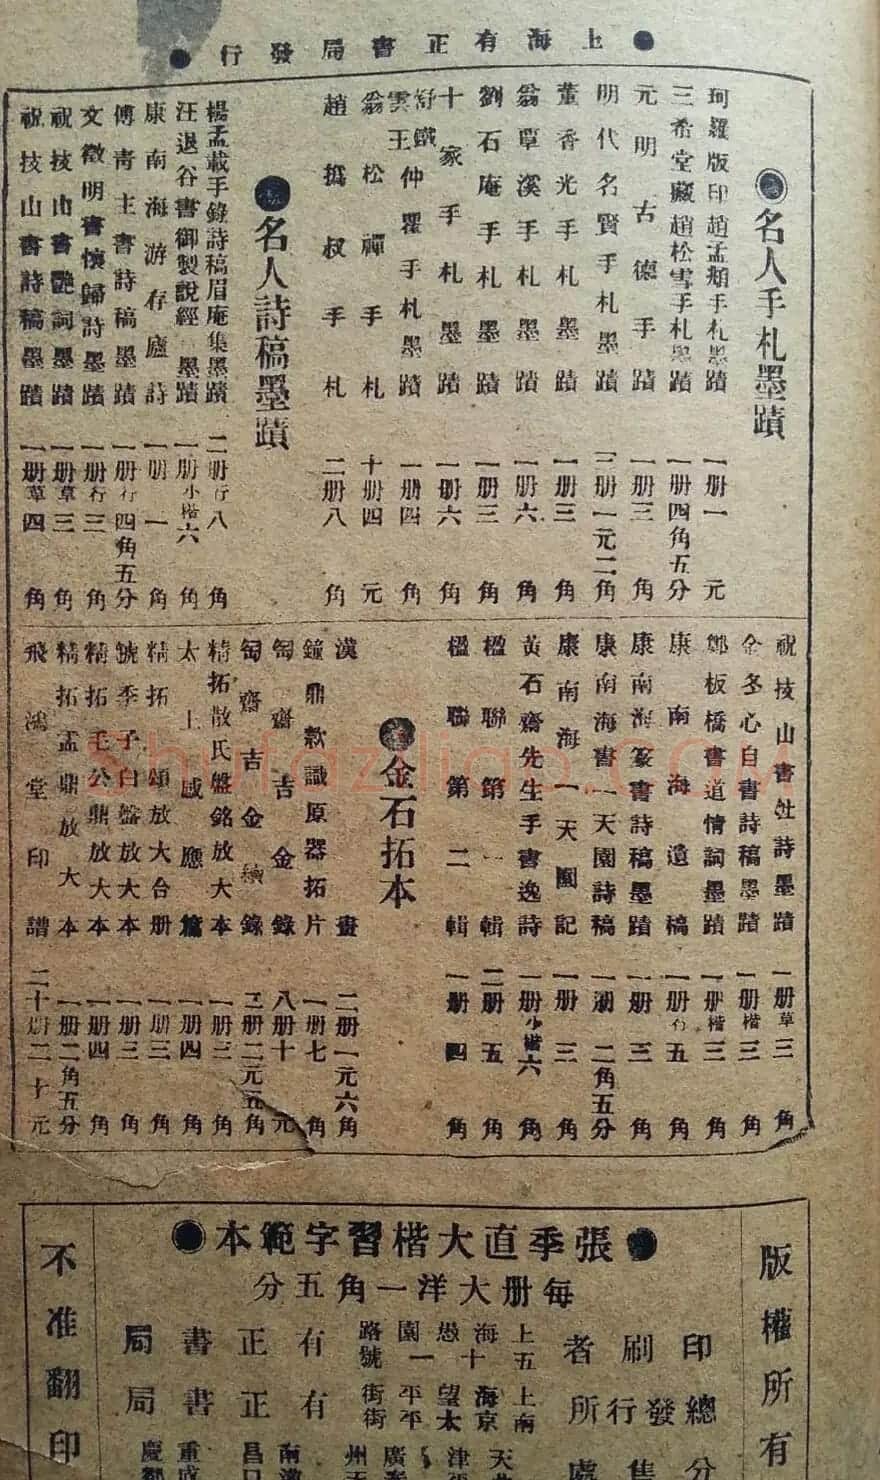 ●上海有正書局發行●
名人手札墨蹟
珂羅版印趙孟頫手札墨蹟 一册一元
三希堂藏趙松雪手札墨蹟 一册四角五分
元明古德手蹟 一册三角
明代名賢手札墨蹟 三册一元二角
董香光手札墨蹟 一册三角
翁覃溪手札墨蹟 一册六角
劉石庵手札墨蹟 一册三角
十家手札墨蹟 一册六角
舒鐵雲王仲瞿手札墨蹟 一册四角
翁松禪手札 十册四元
趙撝叔手札 二册八角
名人詩稿墨蹟
楊孟載手錄詩稿眉庵集墨蹟 二册行八角
汪退谷書御製說經墨蹟 一册小楷六角
康南海游存廬詩 一册一角
傅青主書詩稿墨蹟 一册行四角五分
文徵明書懷歸詩墨蹟 一册行三角
祝技山書艷詞墨蹟 一册草三角
祝技山書詩稿墨蹟 一册草四角
祝技山書詩墨蹟 一册草三角
金冬心自書詩稿墨蹟 一册楷三角
鄭板橋書道情詞墨蹟 一册楷三角
康南海遺稿 一册行五角
康南海篆書詩稿墨蹟 一册三角
康南海書一天園詩稿 一册二角五分
康南海一天園記 一册三角
黃石齋先生手書逸詩 一册小楷六角
楹聯第一輯 二册五角
楹聯第二輯 一册四角
金石拓本
漢畫 二册一元六角
鐘鼎款識原器拓片 一册七角
匋齋吉金錄 八册十元
匋齋吉金續錄 二册二元五角
精拓散氏盤銘放大本 一册三角
太上感應篇 一册四角
精拓頌放大台册 一册三角
虢季子白盤放大本 一册三角
精拓毛公鼎放大本 一册四角
精拓盂鼎放大本 一册二角五分
飛鴻堂印譜 二十册二十元
版權所有
●張季直大楷習字範本●
每册大洋一角五分
印刷者 上海愚園路五十一號 有正書局
總發行所 上海望平街 南京太平街 有正書局 有正書局
不准翻印
shufaziliao.com